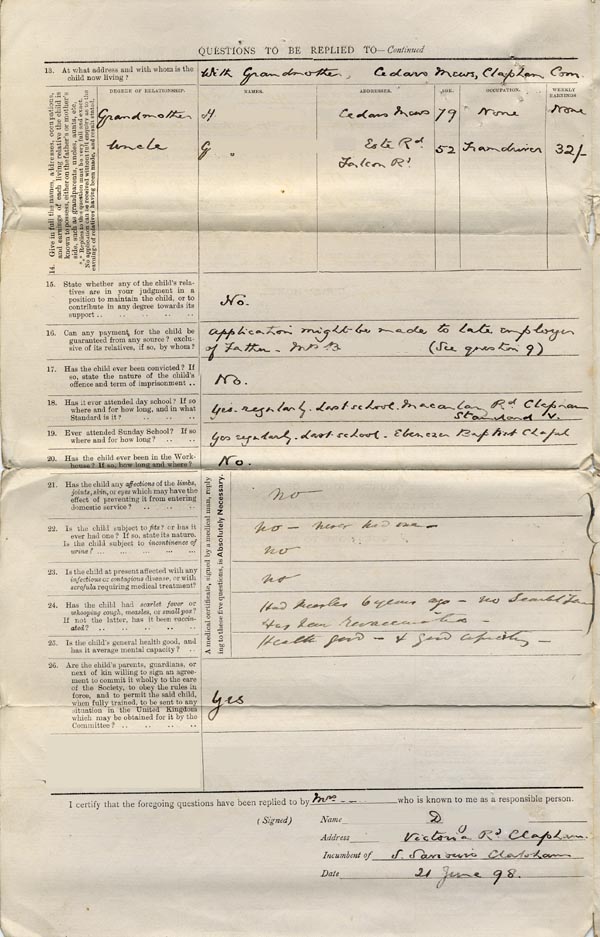 QUESTIONS TO BE REPLIED TO—Continued
13. At what address and with whom is the
child now living?
With Grandmother, Cedars Mews, Clapham Com.
14. Give in full the names, addresses, occupations,
and earnings of each living relative the child is
known to possess, either on the father's or mother's
side, such as grandparents, uncles, aunts, etc.
DEGREE OF RELATIONSHIP.
NAMES.
ADDRESSES.
AGE.
OCCUPATION.
WEEKLY
EARNINGS
Grandmother H Cedars Mews 79 None None
Uncle G " Este Rd 52 32/-
Falcon Rd
15. State whether any of the child's rela-
tives are in your judgment in a
position to maintain the child, or to
contribute in any degree towards its
support .. .. .. .. ..
No.
16. Can any payment for the child be
guaranteed from any source? exclu-
sive of its relatives, if so, by whom?
Application might be made to late employer
of Father - Mrs B (See question 9)
17. Has the child ever been convicted? If
so, state the nature of the child's
offence and term of imprisonment ..
No.
18. Has it ever attended day school? If so
where and for how long, and in what
Standard is it? .. .. .. ..
Yes. regularly. Last school. Macaulay Rd Clapham
Standard V.
19. Ever attended Sunday School? If so
where and for how long? .. ..
Yes regularly. Last school. Ebenezer Baptist Chapel
20. Has the child ever been in the Work-
house? If so, how long and where?
No.
A medical certificate, signed by a medical man, reply
ing to these five questions, is Absolutely Necessary.
21. Has the child any affections of the limbs,
joints, skin, or eyes which may have the
effect of preventing it from entering
domestic service? .. .. ..
no
22. Is the child subject to fits? or has it
ever had one? If so, state its nature.
Is the child subject to incontinence of
urine? ... ... ... ... ...
no - never had one -
no
23. Is the child at present affected with any
infectious or contagious disease, or with
scrofula requiring medical treatment?
no
24. Has the child had scarlet fever or
whooping cough, measles, or small pox?
If not the latter, has it been vaccin-
ated? .. .. .. .. ..
Had measles 6 years ago - no Scarlet
Has been
25. Is the child's general health good, and
has it average mental capacity? ..
Health good - & good capacity -
26. Are the child's parents, guardians, or
next of kin willing to sign an agree-
ment to commit it wholly to the care
of the Society, to obey the rules in
force, and to permit the said child,
when fully trained, to be sent to any
situation in the United Kingdom
which may be obtained for it by the
Committee? .. .. .. ..
Yes
I certify that the foregoing questions have been replied to by Mrs who is known to me as a responsible person.
(Signed) Name D
Address Victoria Rd Clapham
Incumbent of S. Saviours Clapham
Date 21 June 98.